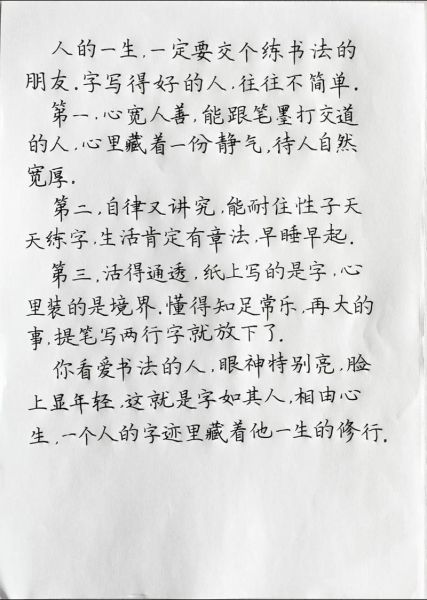 人的一生，一定要交个练书法的
朋友．字写得好的人，往往不简单．
第一，心宽人善，能跟笔墨打交道
的人，心里藏着一份静气，待人自然
宽厚．
第二，自律又讲究，能耐住性子天
天练字，生活肯定有章法，早睡早起．
第三，活得通透，纸上写的是字，心
里装的是境界．懂得知足常乐，再大的
事，提笔写两行字就放下了．
你看爱书法的人，眼神特别亮，脸
上显年轻，这就是字如其人，相由心
生，一个人的字迹里藏着他一生的修行．